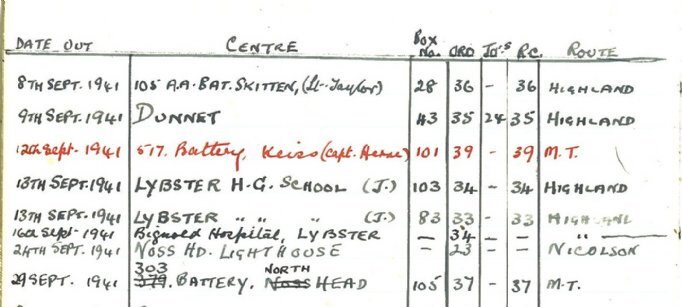 DATE OUT CENTRE Box No. ORD Jo's R.C. ROUTE
8TH SEPT. 1941 105 A.A. BAT. SKITTEN, (Lt. Taylor) 28 36 - 36 HIGHLAND
9TH SEPT. 1941 DUNNET 43 35 24 35 HIGHLAND
12th Sept. 1941 517. Battery, Keiss (Capt. ) 101 39 - 39 M.T.
13TH SEPT. 1941 LYBSTER H.G. SCHOOL (J.) 103 34 - 34 HIGHLAND
13TH SEPT. 1941 LYBSTER " " " (J.) 83 33 - 33 HIGHLAND
16th Sept 1941 Bignold Hospital, LYBSTER - 34 - - "
24TH SEPT. 1941 NOSS HD. LIGHTHOUSE - 23 - - NICOLSON
29 SEPT. 1941 379 303. BATTERY, Noss NORTH HEAD 105 37 - 37 M.T.